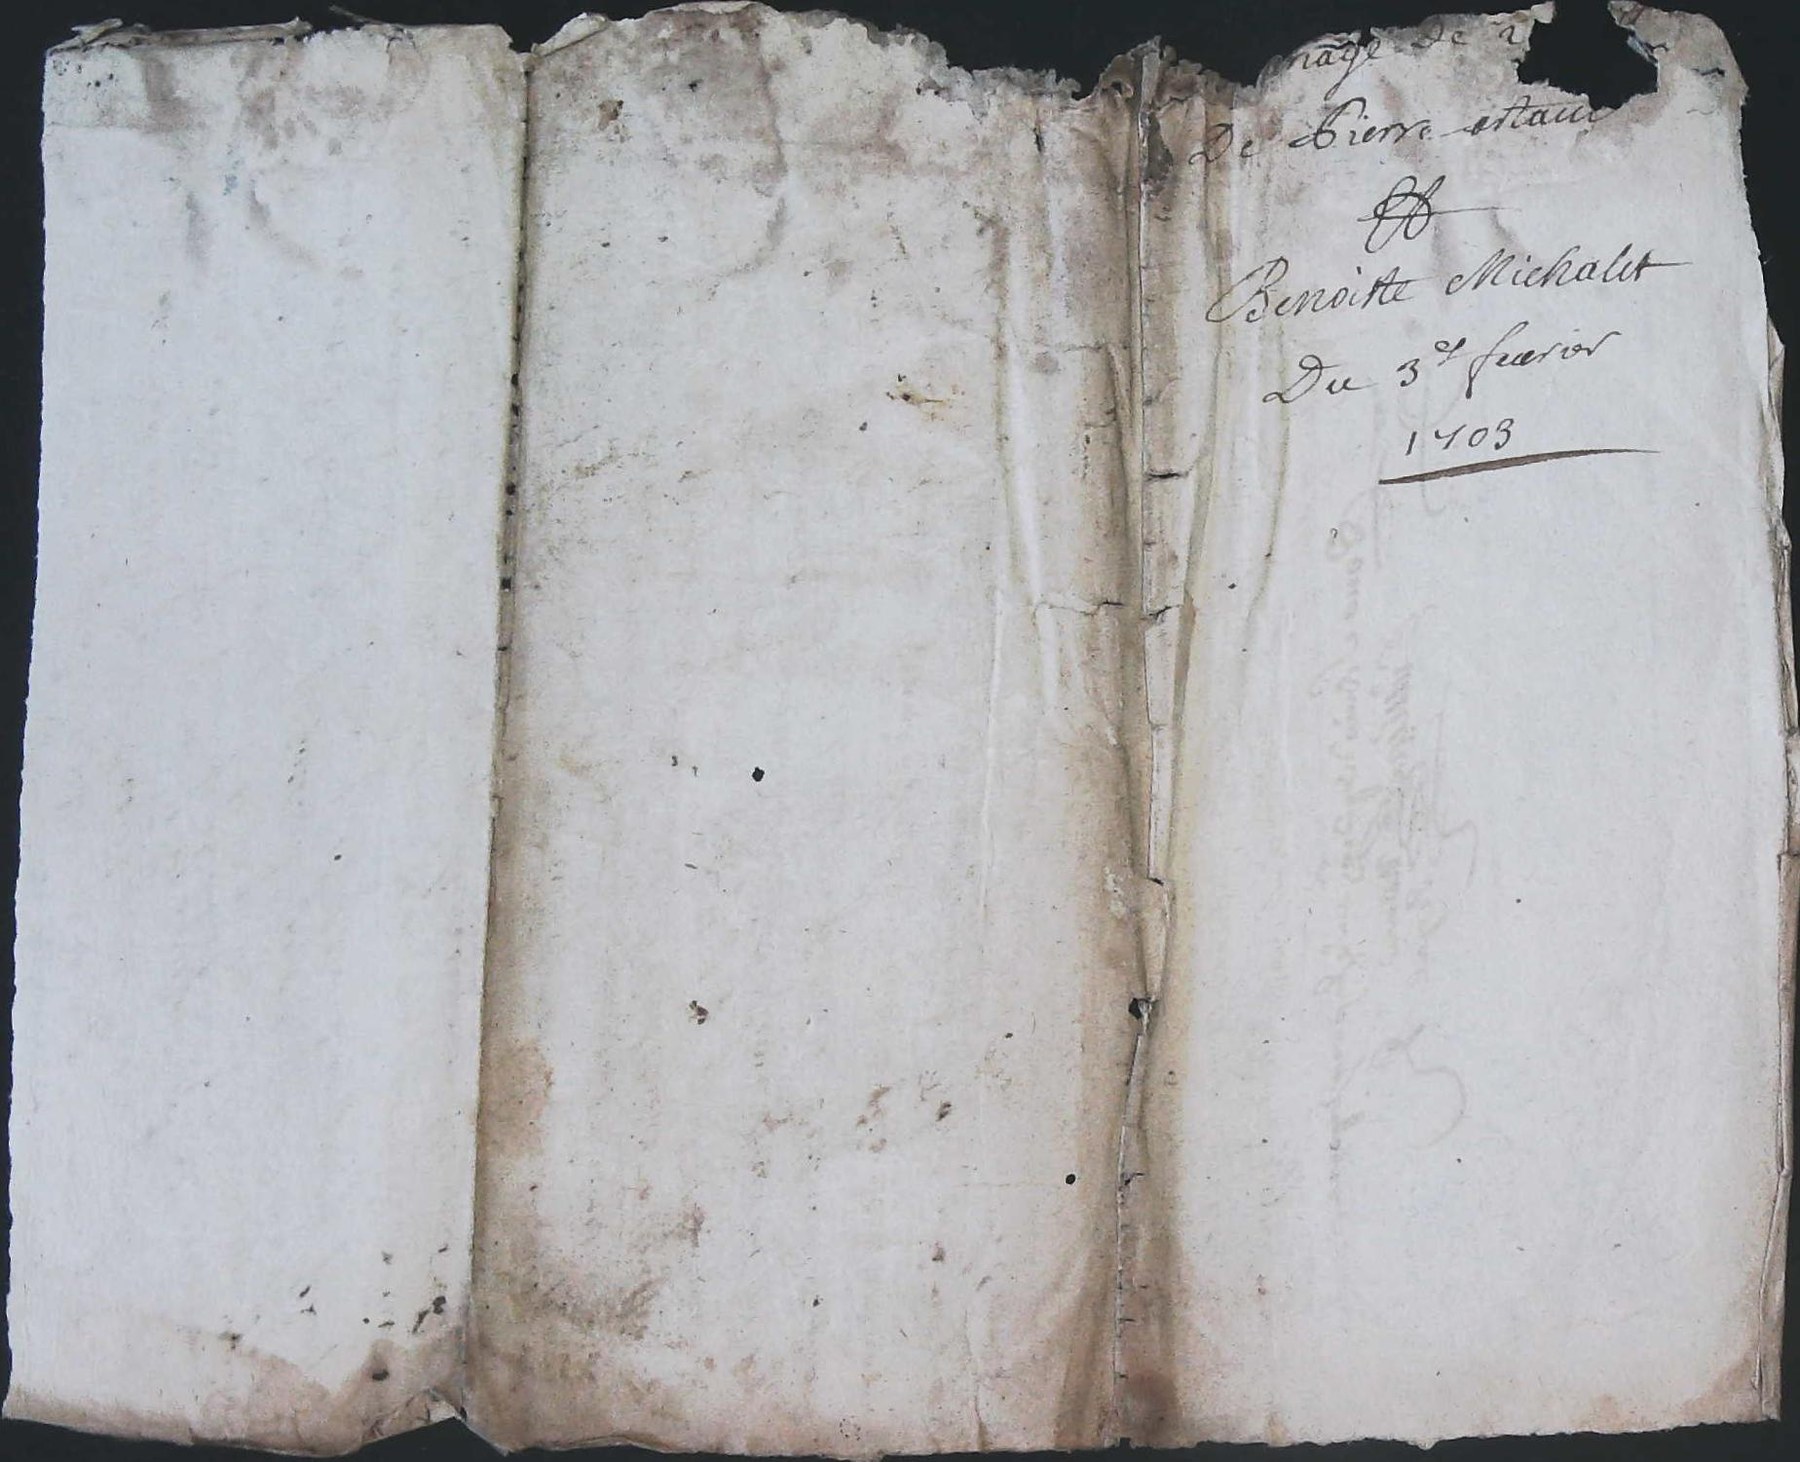 nage de
De Pierre astaud
&
Benoitte Michalet
Du 3e feurier
1703